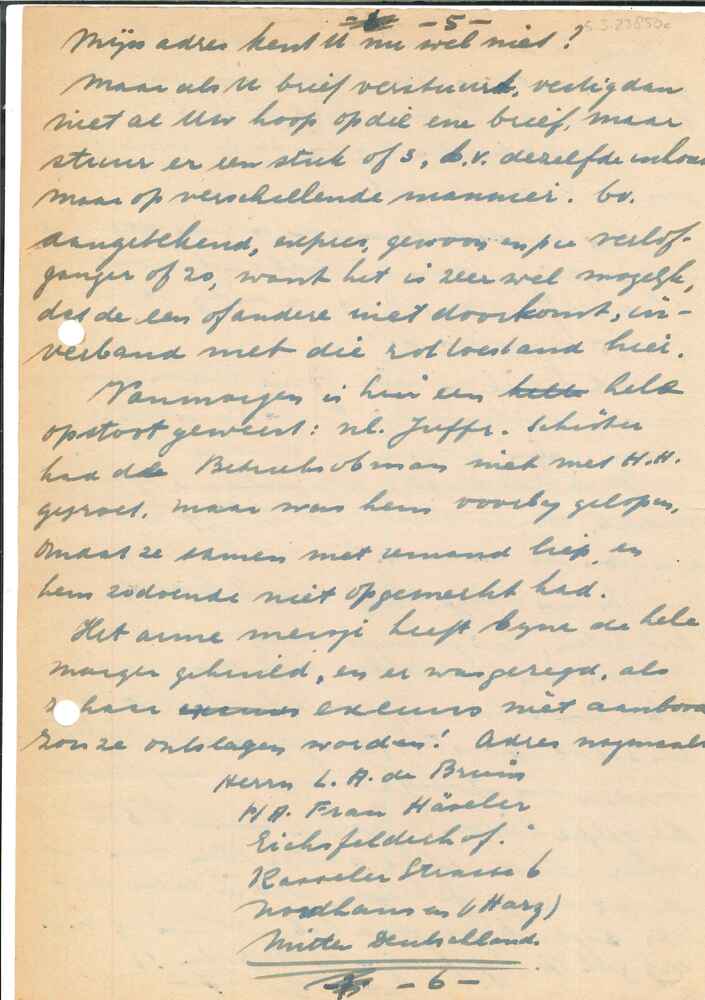 - 5 -
Mijn adres kent U nu wel niet?
Maar als U brief verstuurt, vestig dan
niet al Uw hoop op die ene brief, maar
stuur er een stuk of 3, b.v. dezelfde inhou
maar op verschillende manier. bv.
aangetekend, expres, gewoon en per verlof-
ganger of zo, want het is zeer wel mogelijk,
dat de een of andere niet doorkomt, in-
verband met die rottoestand hier.
Vanmorgen is hier een hele
opstoot geweest: nl. Juffr. Schöter
had de Betriebsobman niet met H.H.
gegroet, maar was hem voorbij gelopen,
omdat ze samen met iemand liep, en
hem zodoende niet opgemerkt had.
Het arme meisje heeft bijna de hele
morgen gehuild, en er was gezegd, als
z haar excuus niet aanbood
zou ze ontslagen worden! Adres nogmaals
Herrn L. A. de Bruin
Frau Häseler
Eichsfelderhof.
Kasseler Strasse 6
Nordhausen (Harz)
Mittel Deutschland.
- 6 -